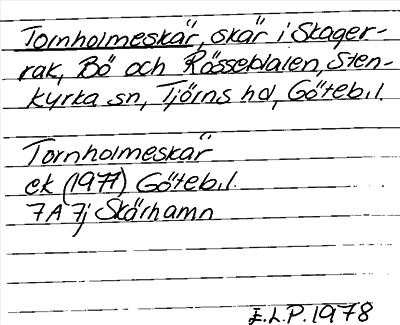 Tornholmeskär, skär i Skager-
rak, Bö och Rösseldalen, Sten-
kyrka sn, Tjörns hd, Göteb.l.
Tornholmeskär
ek (1977) Göteb.l.
7A 7j Skärhamn
E.L.P. 1978